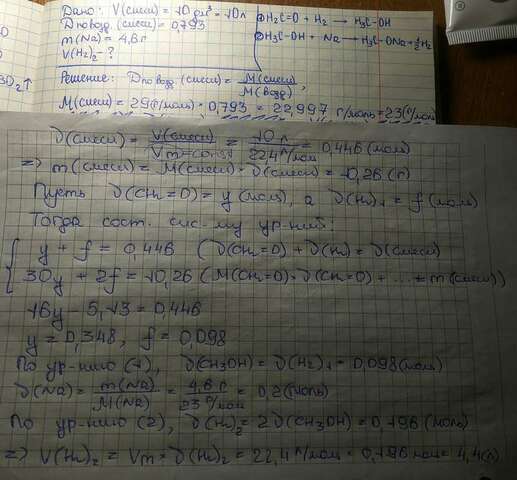 Дано: V(смеси) = 10 дм³ = 10л
D по возд. (смеси) = 0,793
m(Na) = 4,6 г
V(H₂)₂ - ?
① H₂C=O + H₂ → H₃C-OH
② H₃C-OH + Na → H₃C-ONa + ½H₂
Решение: D по возд. (смеси) = M(смеси)/M(возд),
M(смеси) = 29 (г/моль) · 0,793 = 22,997 г/моль = 23 (г/моль)
ϑ(смеси) = V(смеси)/Vm=const = 10 л/22,4 л/моль = 0,446 (моль)
=> m(смеси) = M(смеси) · ϑ(смеси) = 10,26 (г)
Пусть ϑ(CH₂=O) = y (моль), а ϑ(H₂)₁ = f (моль)
Тогда сост. сис-му ур-ний:
y + f = 0,446 (ϑ(CH₂=O) + ϑ(H₂) = ϑ(смеси)
30y + 2f = 10,26 (M(CH₂=O) · ϑ(CH₂=O) + ... = m(смеси))
16y - 5,13 = 0,446
y = 0,348, f = 0,098
По ур-нию (1), ϑ(CH₃OH) = ϑ(H₂)₁ = 0,098 (моль)
ϑ(Na) = m(Na)/M(Na) = 4,6 г/23 г/моль = 0,2 (моль)
По ур-нию (2), ϑ(H₂)₂ = 2ϑ(CH₃OH) = 0,196 (моль)
=> V(H₂)₂ = Vm · ϑ(H₂)₂ = 22,4 л/моль · 0,196 моль = 4,4 (л)